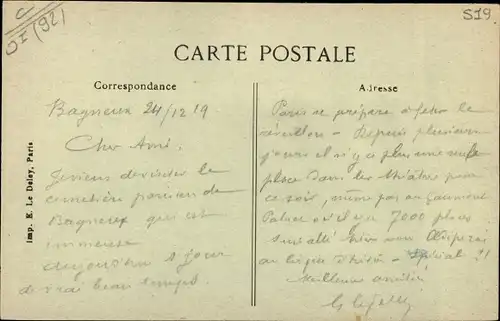 C
OI (92)
S19
CARTE POSTALE
Correspondance
Adresse
Bagneux 24/12 19
Cher Ami,
Je viens de visiter le
cimetière parisien de
Bagneux qui est
immense
aujourd'hui 1 jour
de vrai beau temps.
Paris se prépare à fêter le
réveillon - Depuis plusieurs
jours il n'y a plus une seule
place dans les théâtres pour
ce soir, même pas au Gaumont
Palace où il y a 7000 places
suis allé hier voir
au
Meilleures amitiés
Imp. E. Le Deley, Paris